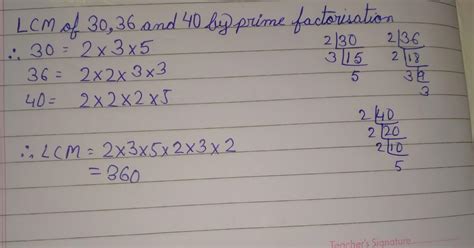 LCM of 30, 36 and 40 by prime factorisation
∴ 30 = 2×3×5
36 = 2×2×3×3
40 = 2×2×2×5
∴ LCM = 2×3×5×2×3×2
= 360
2 30
3 15
5
2 36
2 18
3 9
3
2 40
2 20
2 10
5
Teacher's Signature